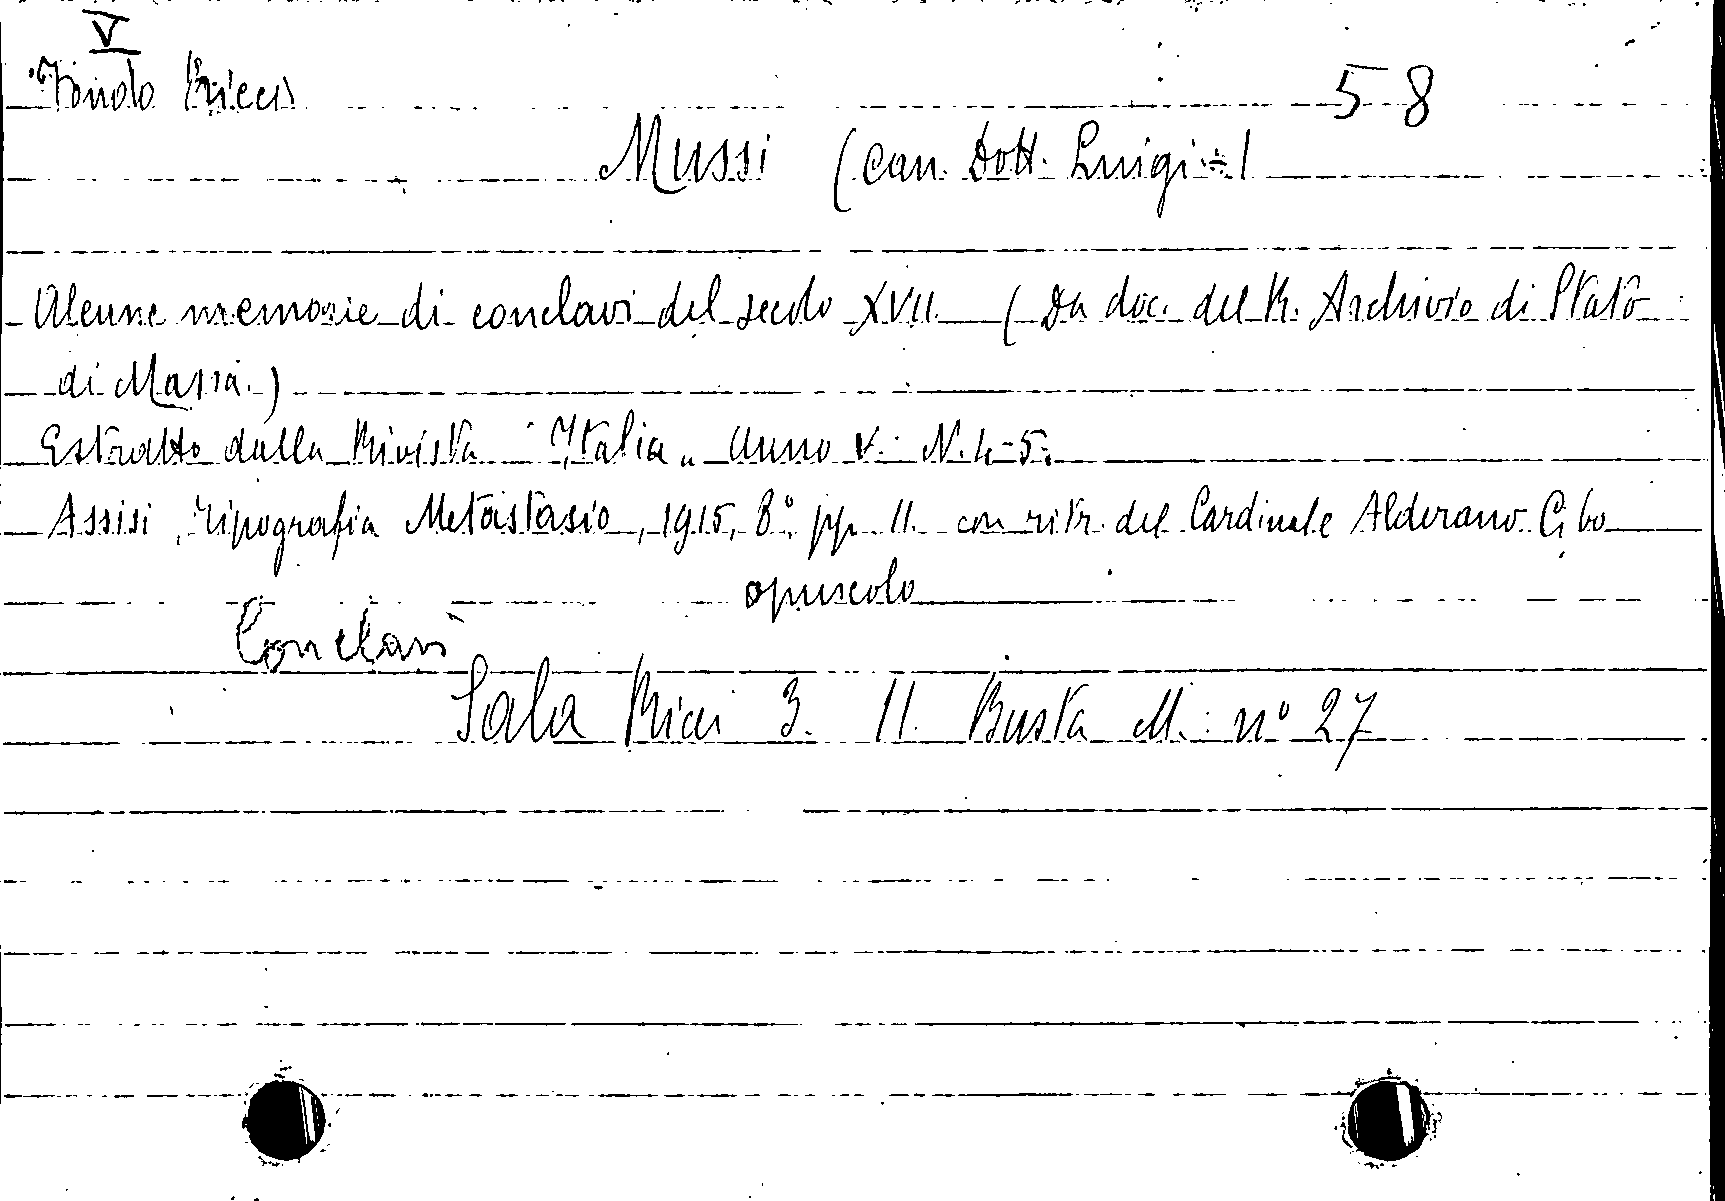 V
Fondo Ricci
58
Mussi (Can. Dott. Luigi)
Alcune memorie di conclavi del secolo XVII. (Da doc. del R. Archivio di Stato
di Massa.)
Estratto dalla Rivista "Italia" Anno V. N. 4-5.
Assisi, Tipografia Metastasio, 1915, 8°, pp. 11. con ritr. del Cardinale Alderano Cibo
opuscolo
Conclavi
Sala Ricci 3. 11. Busta M. n° 27